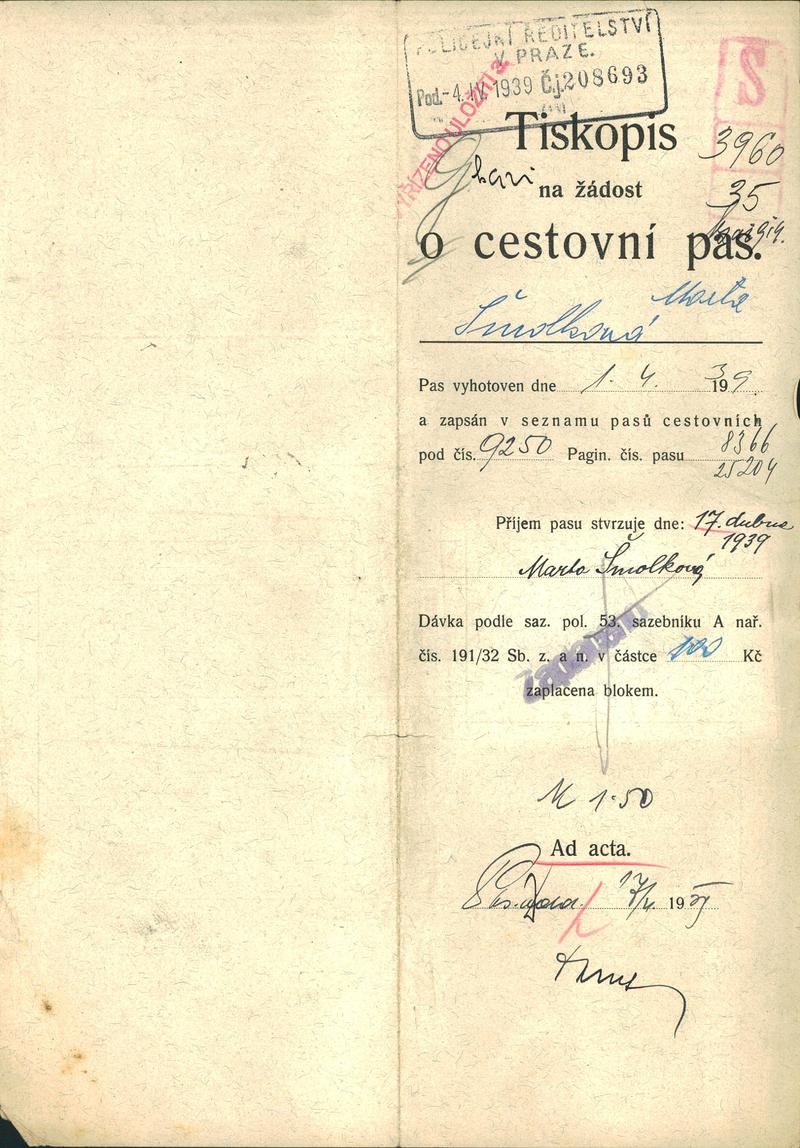 POLICEJNÍ ŘEDITELSTVÍ
V PRAZE.
Pod. -4.IV.1939 Čj.208693
VYŘÍZENO ULOŽITI
S
Tiskopis
3960
na žádost
35
o cestovní pas.
Marta
Šmolková
Pas vyhotoven dne 1. 4. 1939.
a zapsán v seznamu pasů cestovních
pod čís. 9250 Pagin. čís. pasu 8366
25204
Příjem pasu stvrzuje dne: 17. dubna
1939
Marta Šmolková
Dávka podle saz. pol. 53. sazebníku A nař.
čís. 191/32 Sb. z. a n. v částce 100 Kč
zaplacena blokem.
M 1·50
Ad acta.
17/4. 1939